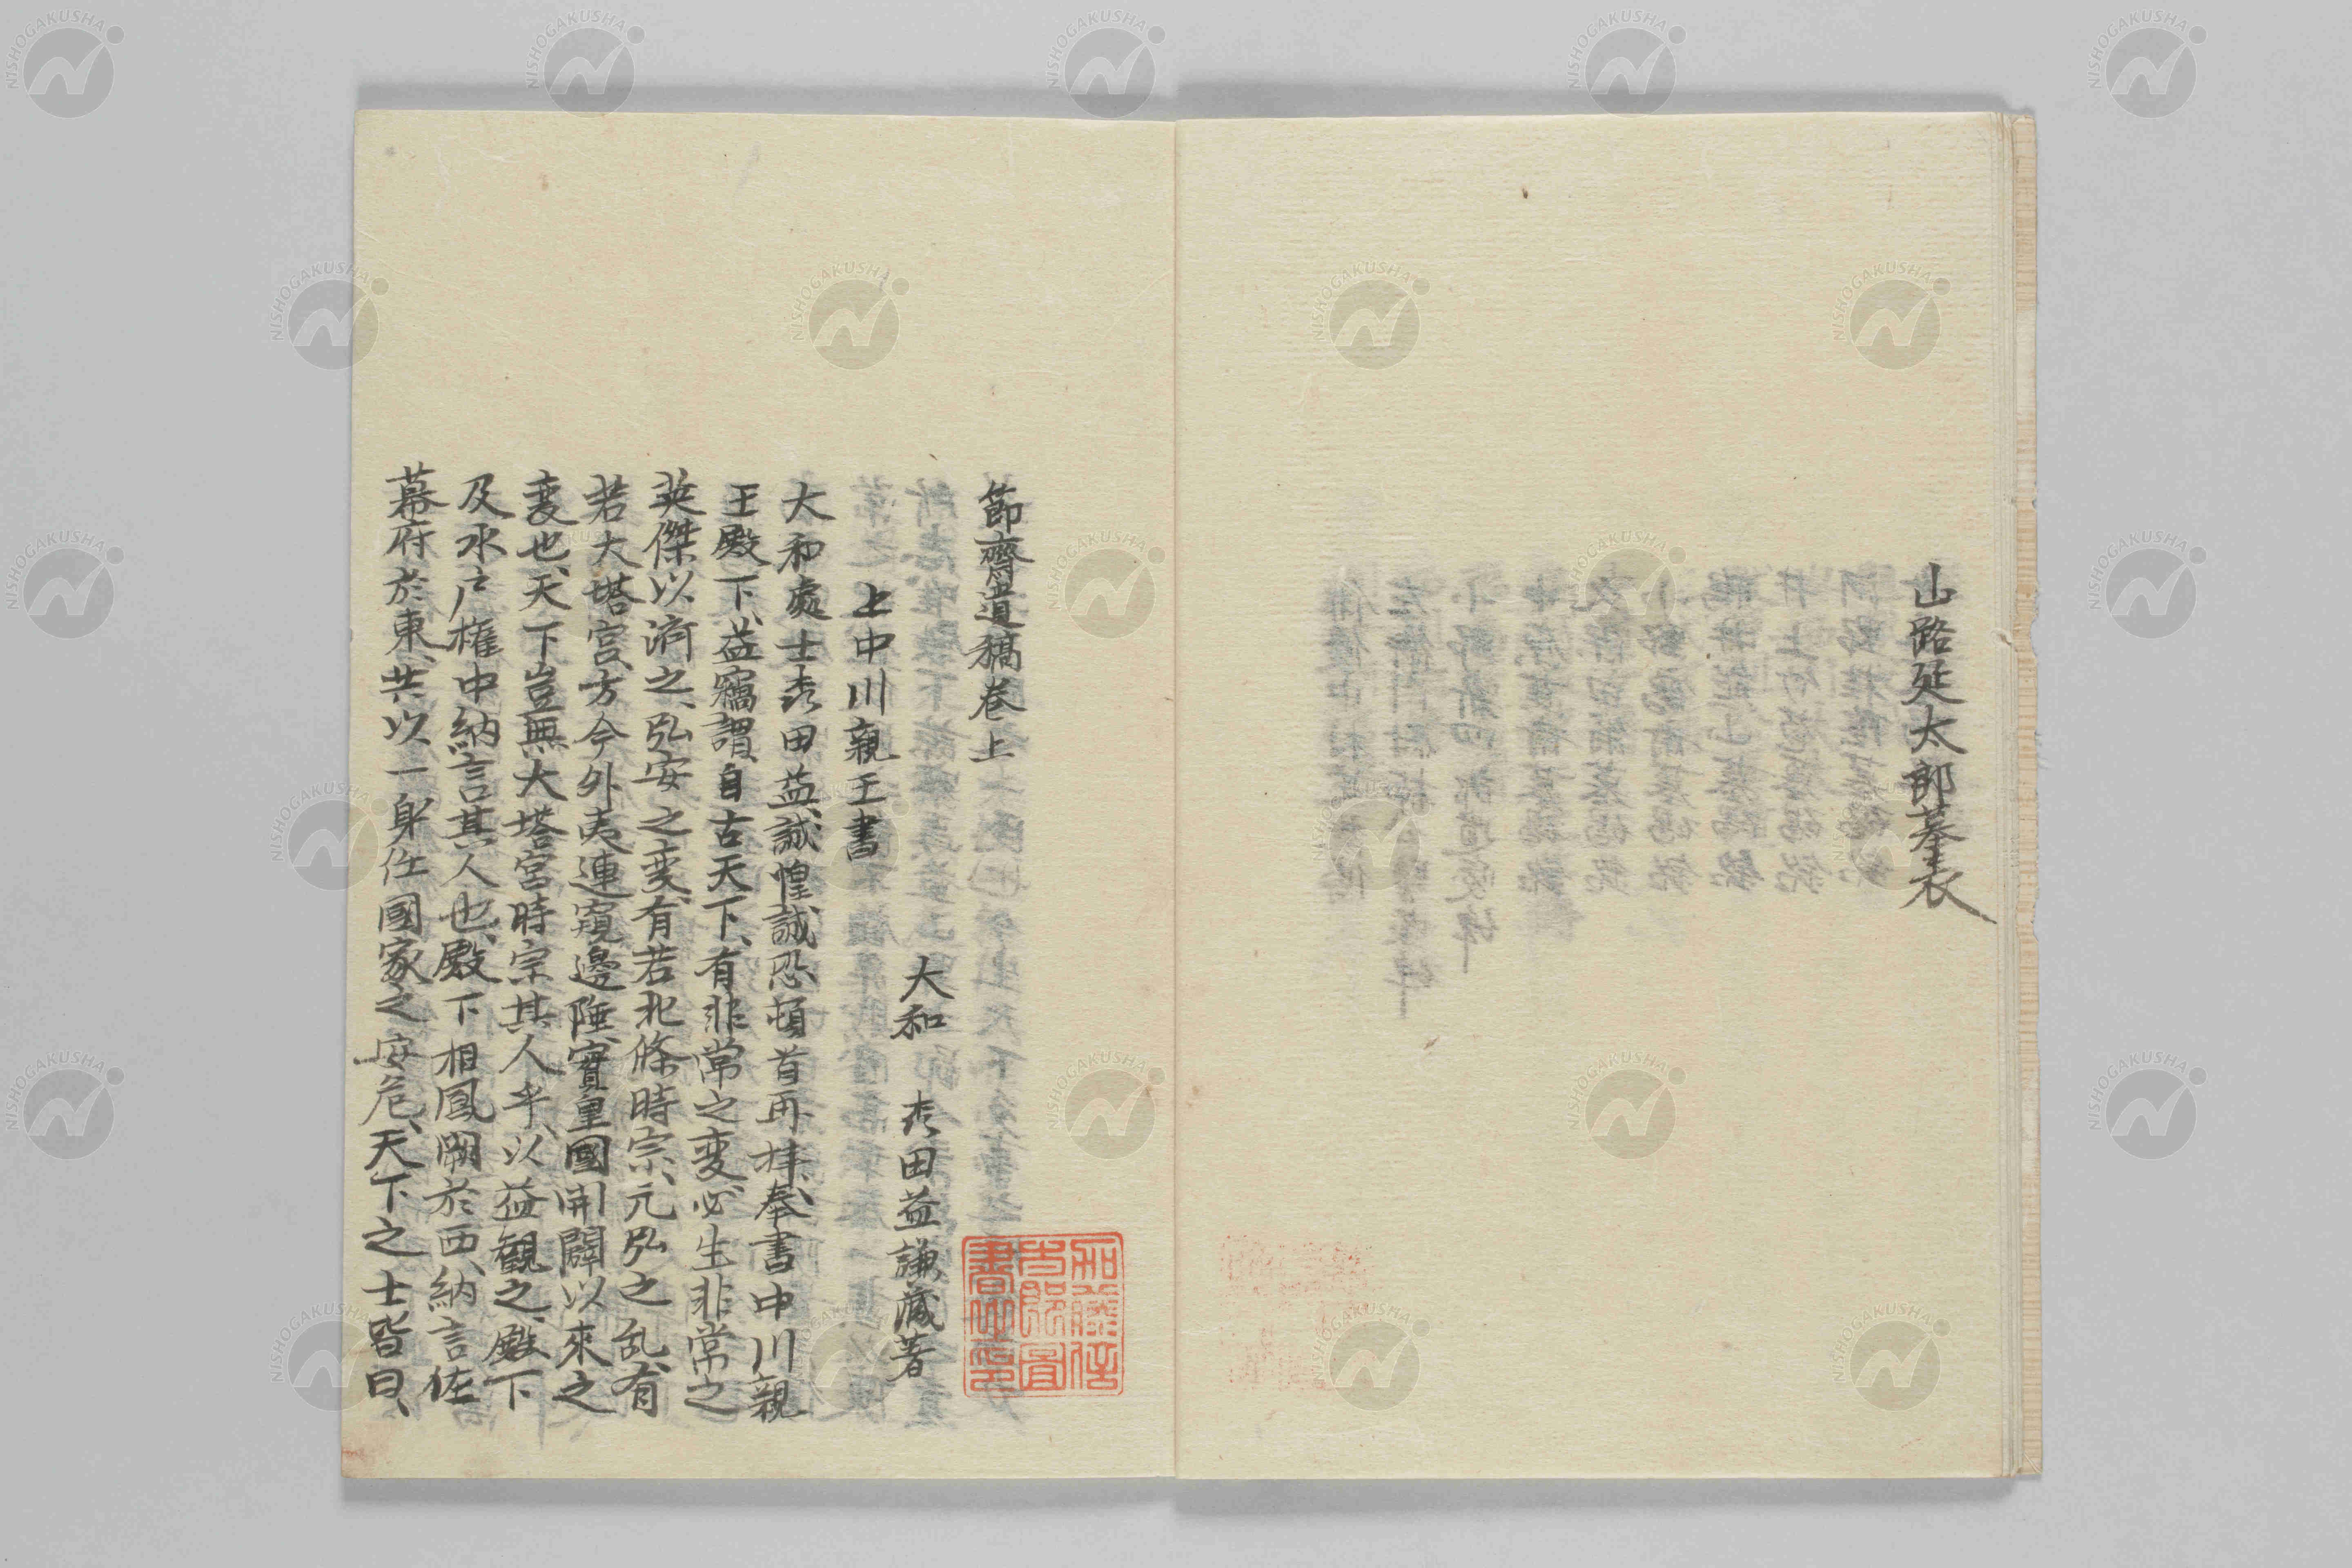 山路延太郎墓表
節齋遺稿卷上
大和 森田益謙藏著
上中川親王書
大和處士森田益、誠惶誠恐頓首再拜、奉書中川親
王殿下、益竊謂、自古天下、有非常之変、必生非常之
英傑以済之、弘安之変、有若北條時宗、元弘之乱、有
若大塔宮、方今外夷連窺邊陲、實皇國開闢以來之
変也、天下豈無大塔宮時宗其人乎、以益観之、殿下
及水戸權中納言其人也、殿下相鳳闕於西、納言佐
幕府於東、共以一身任國家之安危、天下之士皆曰、
NISHOGAKUSHA